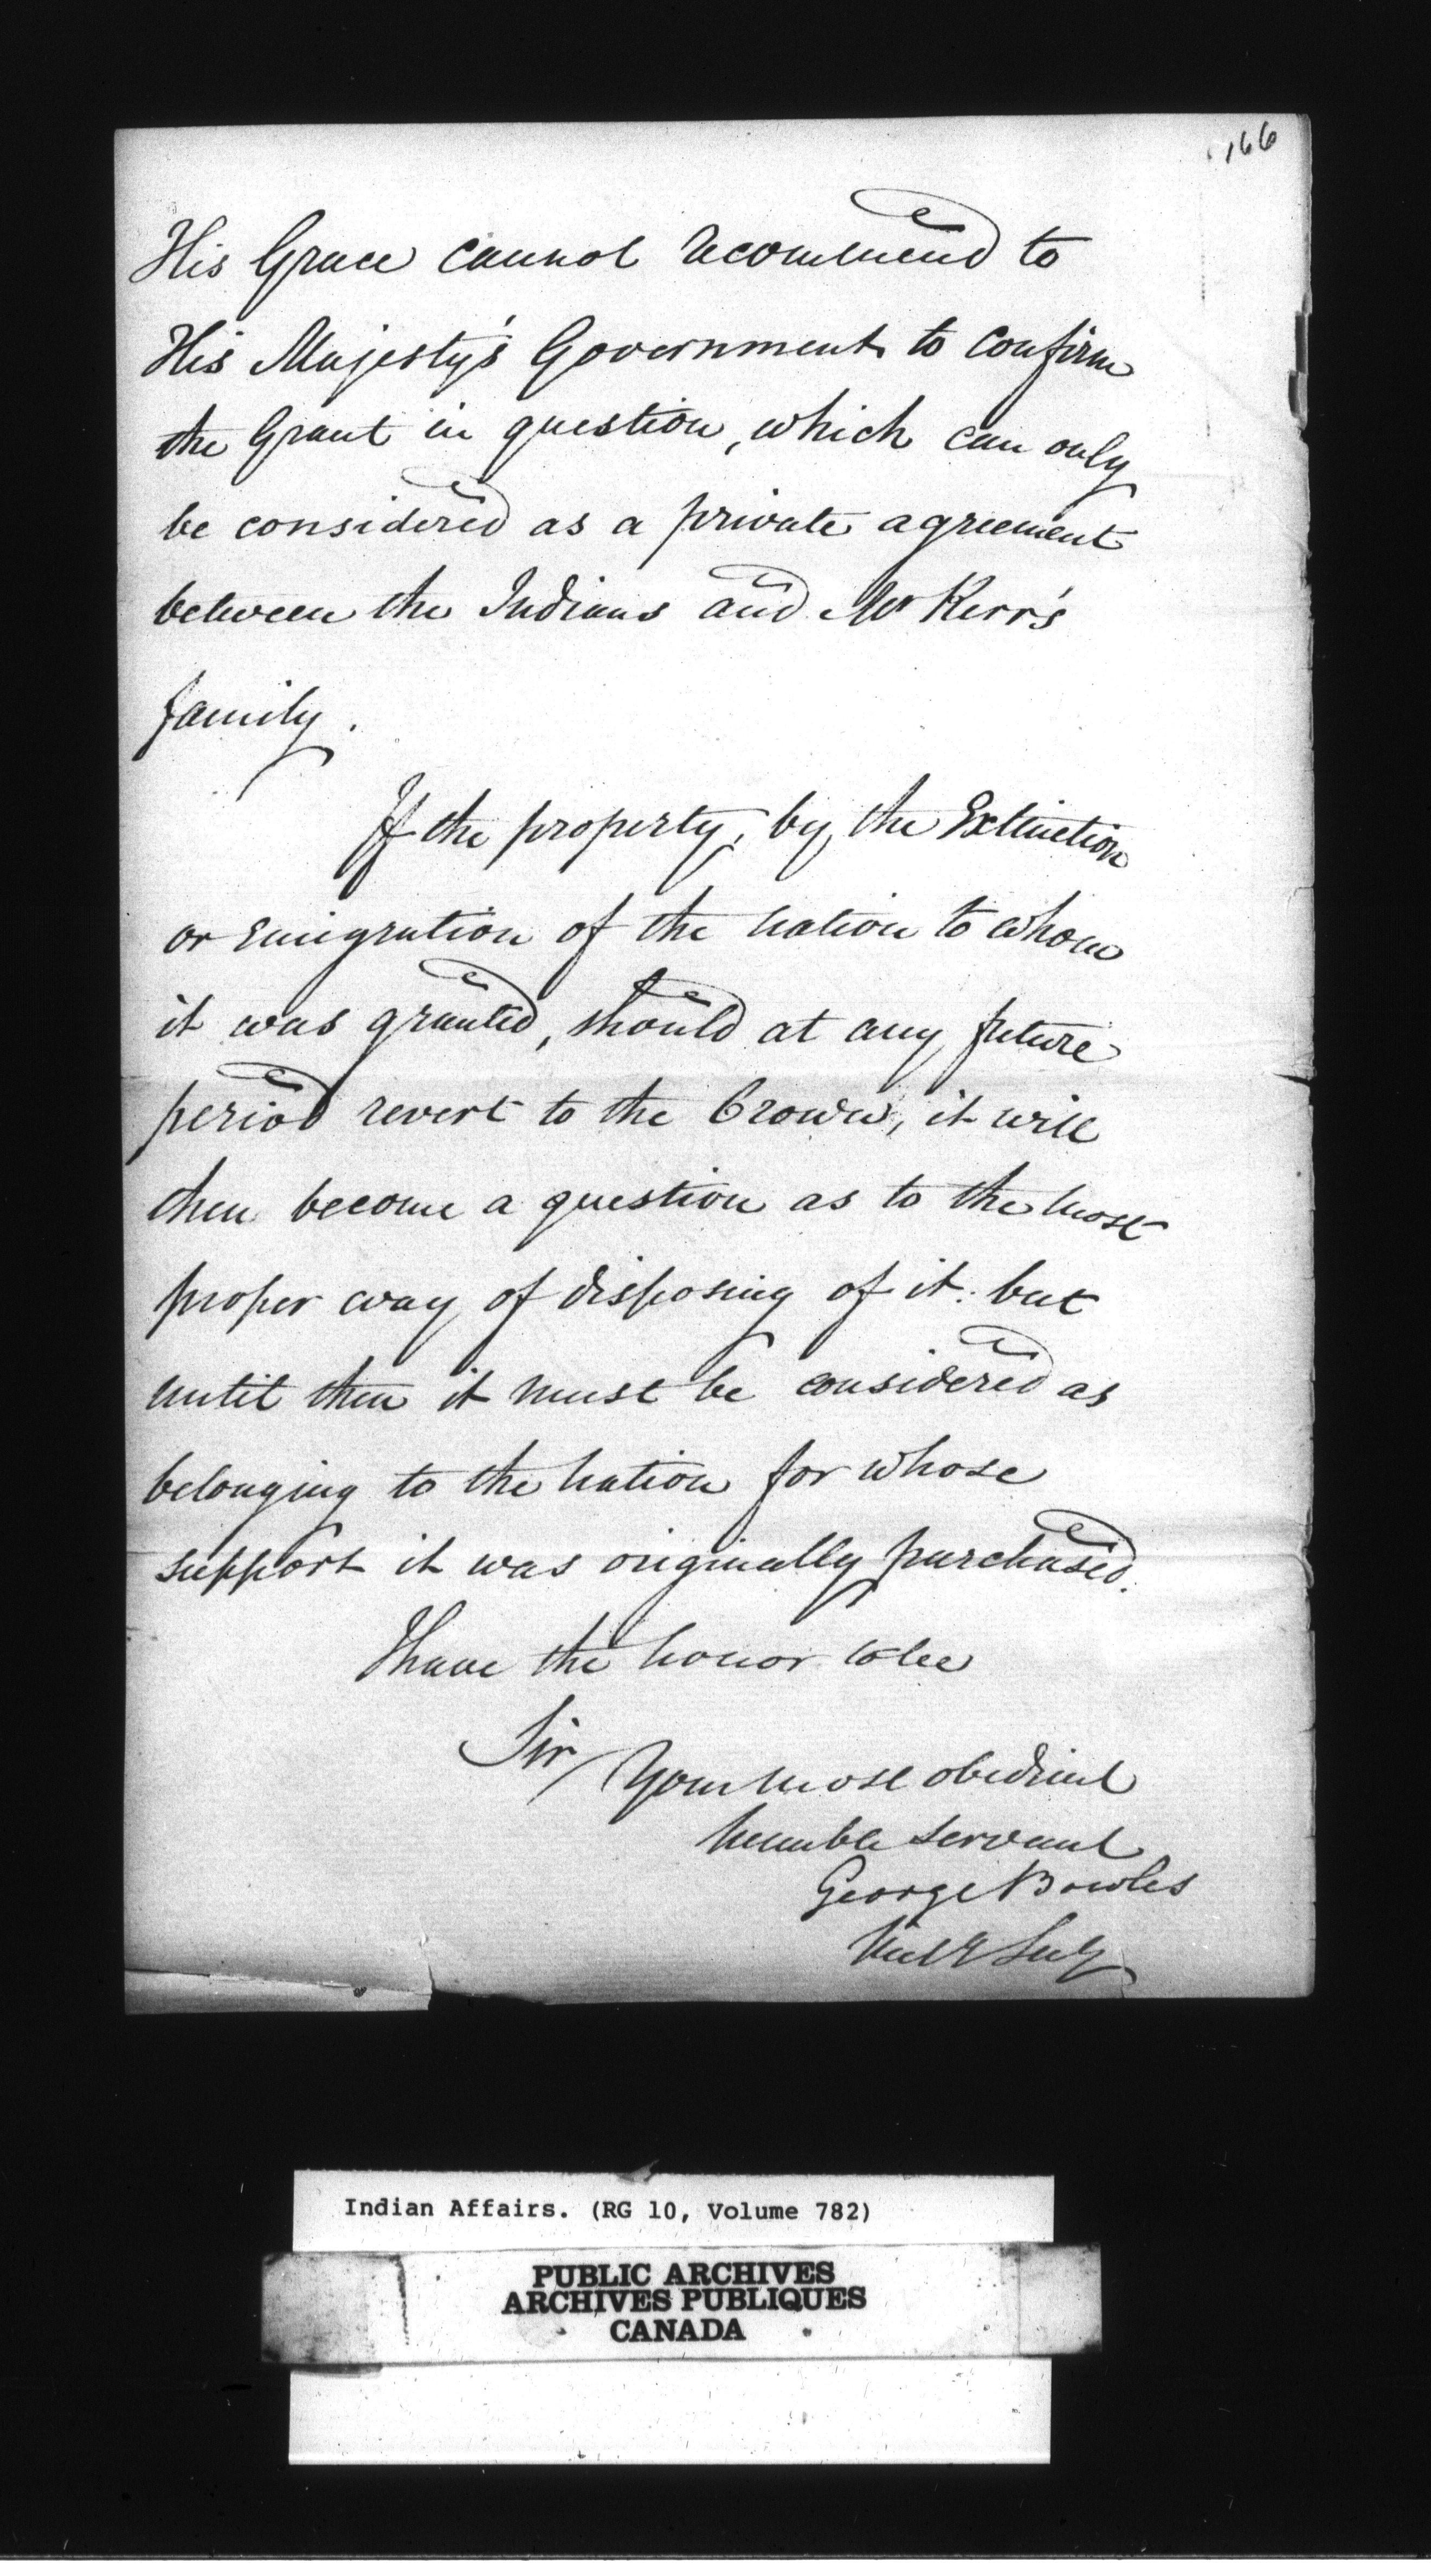 166
His Grace cannot recommend to
His Majesty's Government to confirm
the Grant in question, which can only
be considered as a private agreement
between the Indians and Mr Kerr's
family.
If the property, by the Extinction
or emigration of the nation to whom
it was granted, should at any future
period revert to the Crown, it will
then become a question as to the most
proper way of disposing of it: but
until then it must be considered as
belonging to the nation for whose
support it was originally purchased.
I have the honor to be
Sir
Your most obedient
humble servant
George Bowles
Indian Affairs. (RG 10, Volume 782)
PUBLIC ARCHIVES
ARCHIVES PUBLIQUES
CANADA